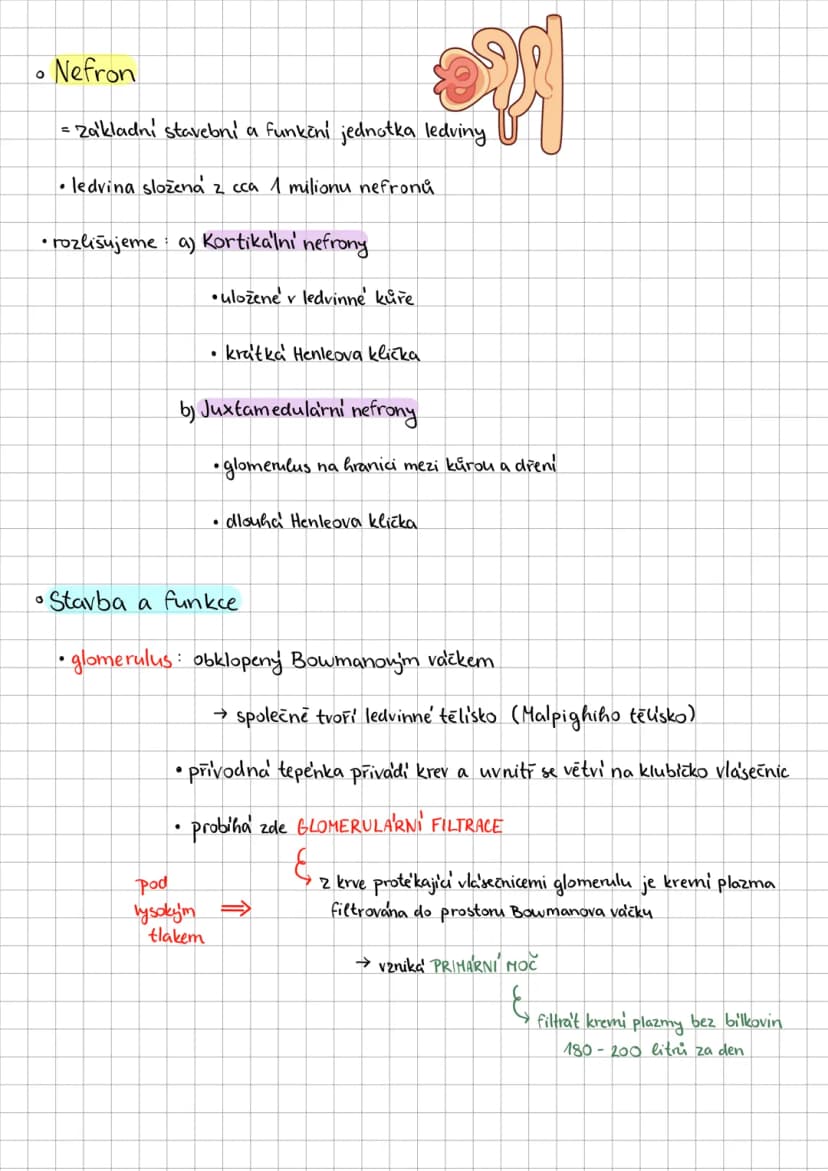 ◦ Nefron
= základní stavební a funkční jednotka ledviny
• ledvina složená z cca 1 milionu nefronů
• rozlišujeme : a) Kortikální nefrony
• uložené v ledvinné kůře
• krátká Henleova klička
b) Juxtamedulární nefrony
• glomerulus na hranici mezi kůrou a dření
• dlouhá Henleova klička
◦ Stavba a funkce
• glomerulus : obklopený Bowmanovým váčkem
→ společně tvoří ledvinné tělísko (Malpighiho tělísko)
• přívodná tepénka přivádí krev a uvnitř se větví na klubíčko vlásečnic
• probíhá zde GLOMERULÁRNÍ FILTRACE
z krve protékající vlásečnicemi glomerulu je krevní plazma
filtrována do prostoru Bowmanova váčku
pod
vysokým ⇒
tlakem
→ vzniká PRIMÁRNÍ MOČ
filtrát krevní plazmy bez bílkovin
180 - 200 litrů za den